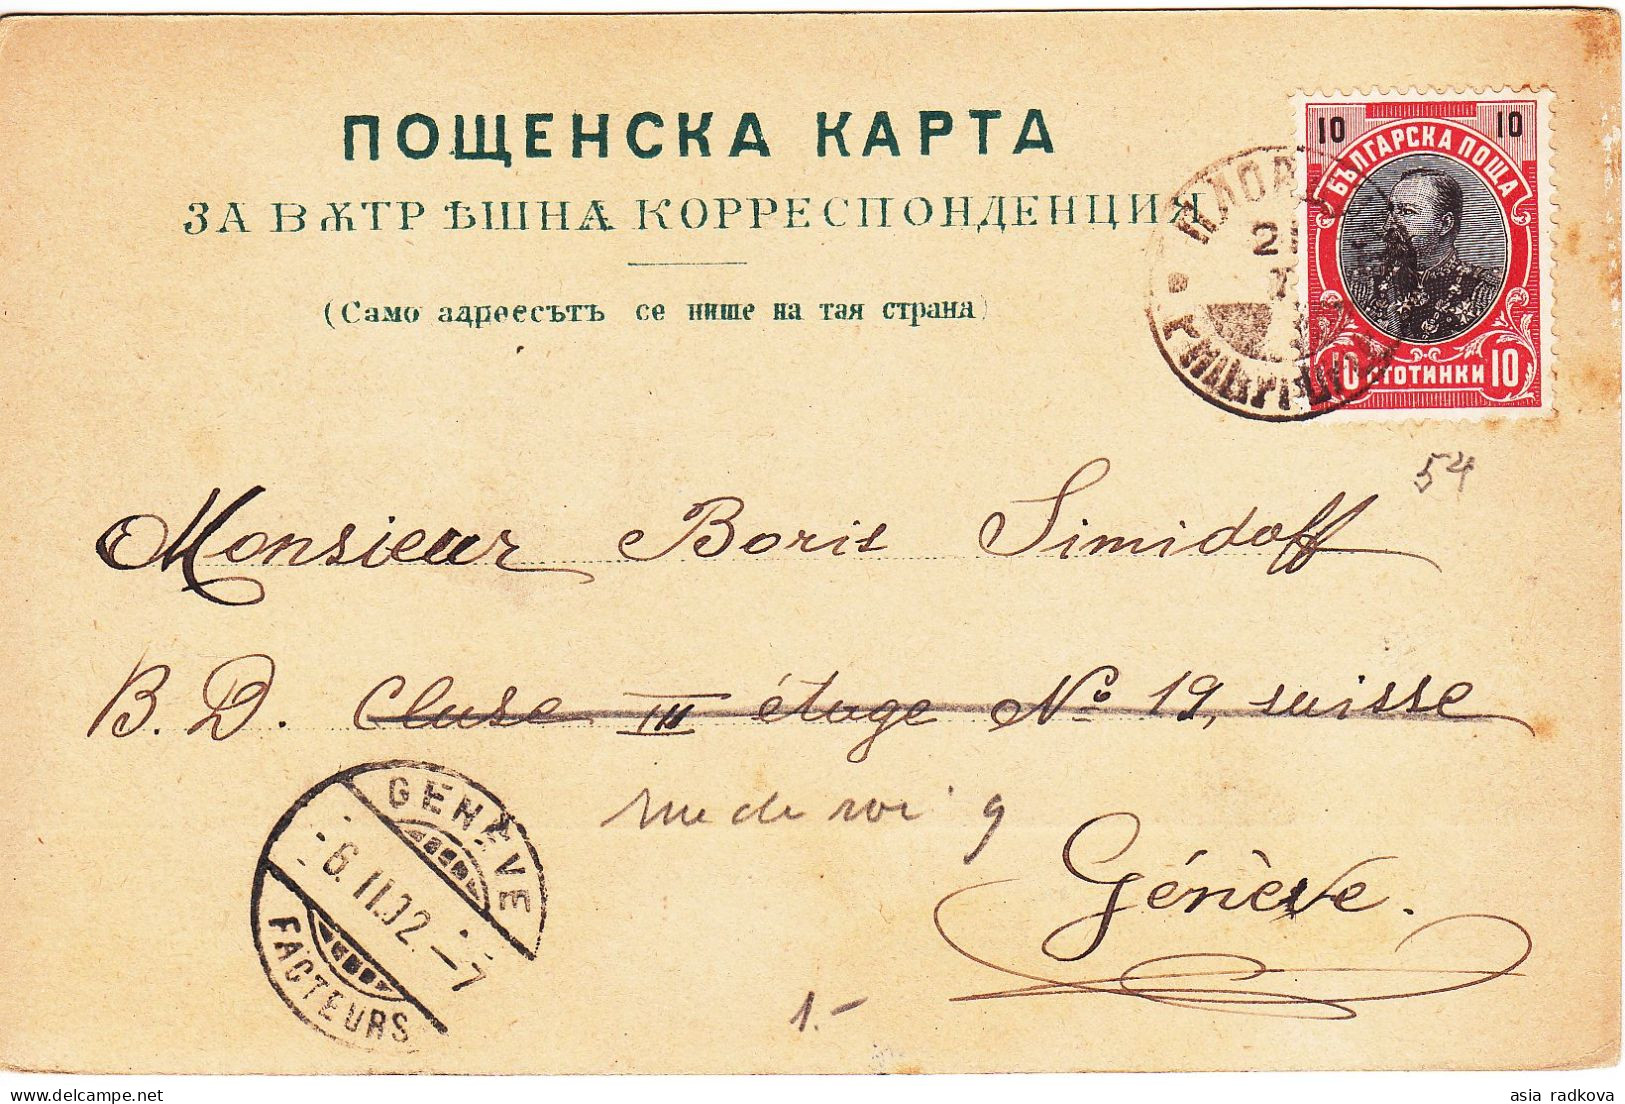 ПОЩЕНСКА КАРТА
ЗА ВѪТРѢШНА КОРРЕСПОНДЕНЦИЯ
(Само адресътъ се пише на тая страна)
10 10
БЪЛГАРСКА ПОЩА
10 СТОТИНКИ 10
21
54
Monsieur Boris Simidoff
B. D. Cluse III étage No 19, suisse
rue de 9
Génève.
GENÈVE
6.II.02.–7
FACTEURS
1.-
asia radkova